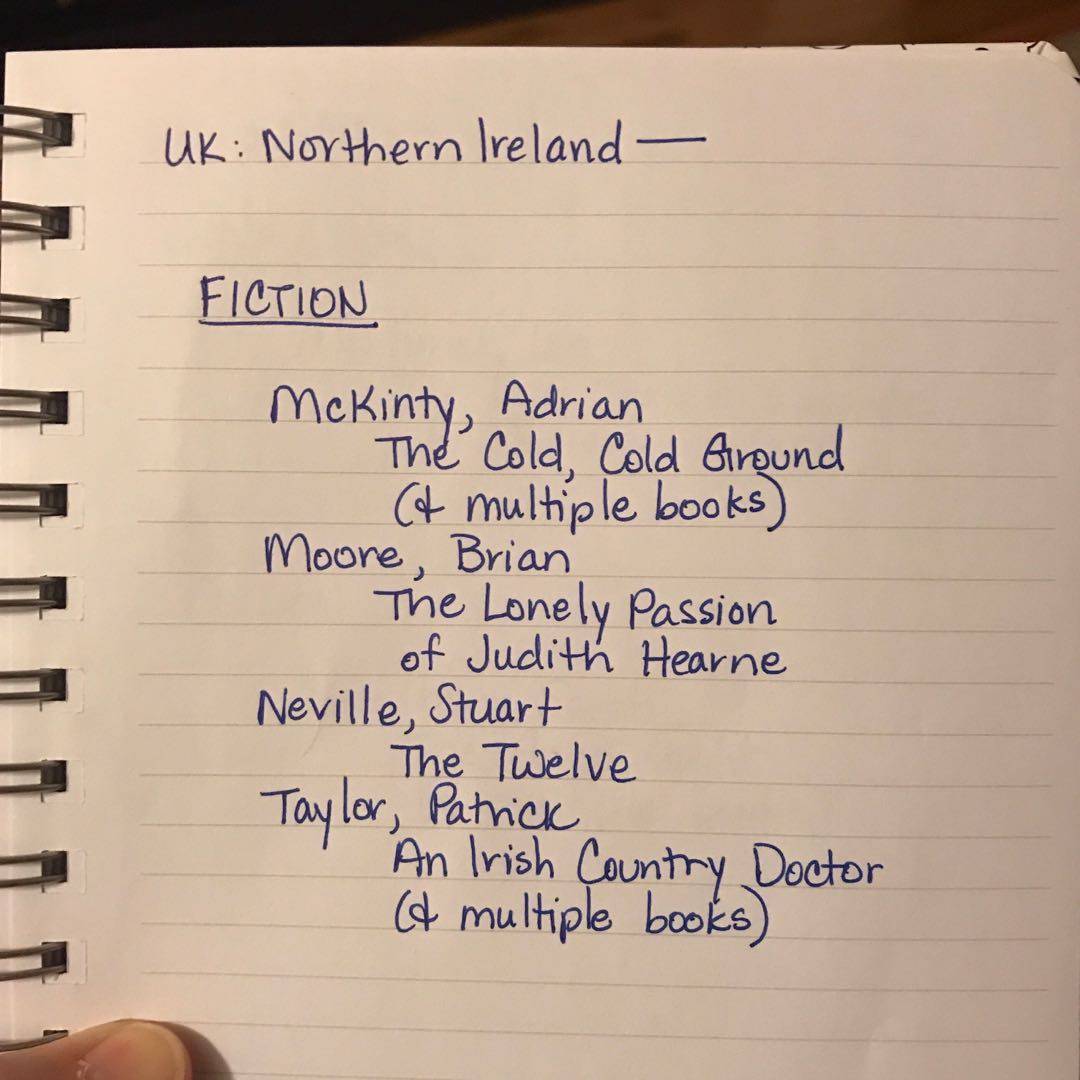 UK: Northern Ireland —
FICTION
McKinty, Adrian
The Cold, Cold Ground
(& multiple books)
Moore, Brian
The Lonely Passion
of Judith Hearne
Neville, Stuart
The Twelve
Taylor, Patrick
An Irish Country Doctor
(& multiple books)